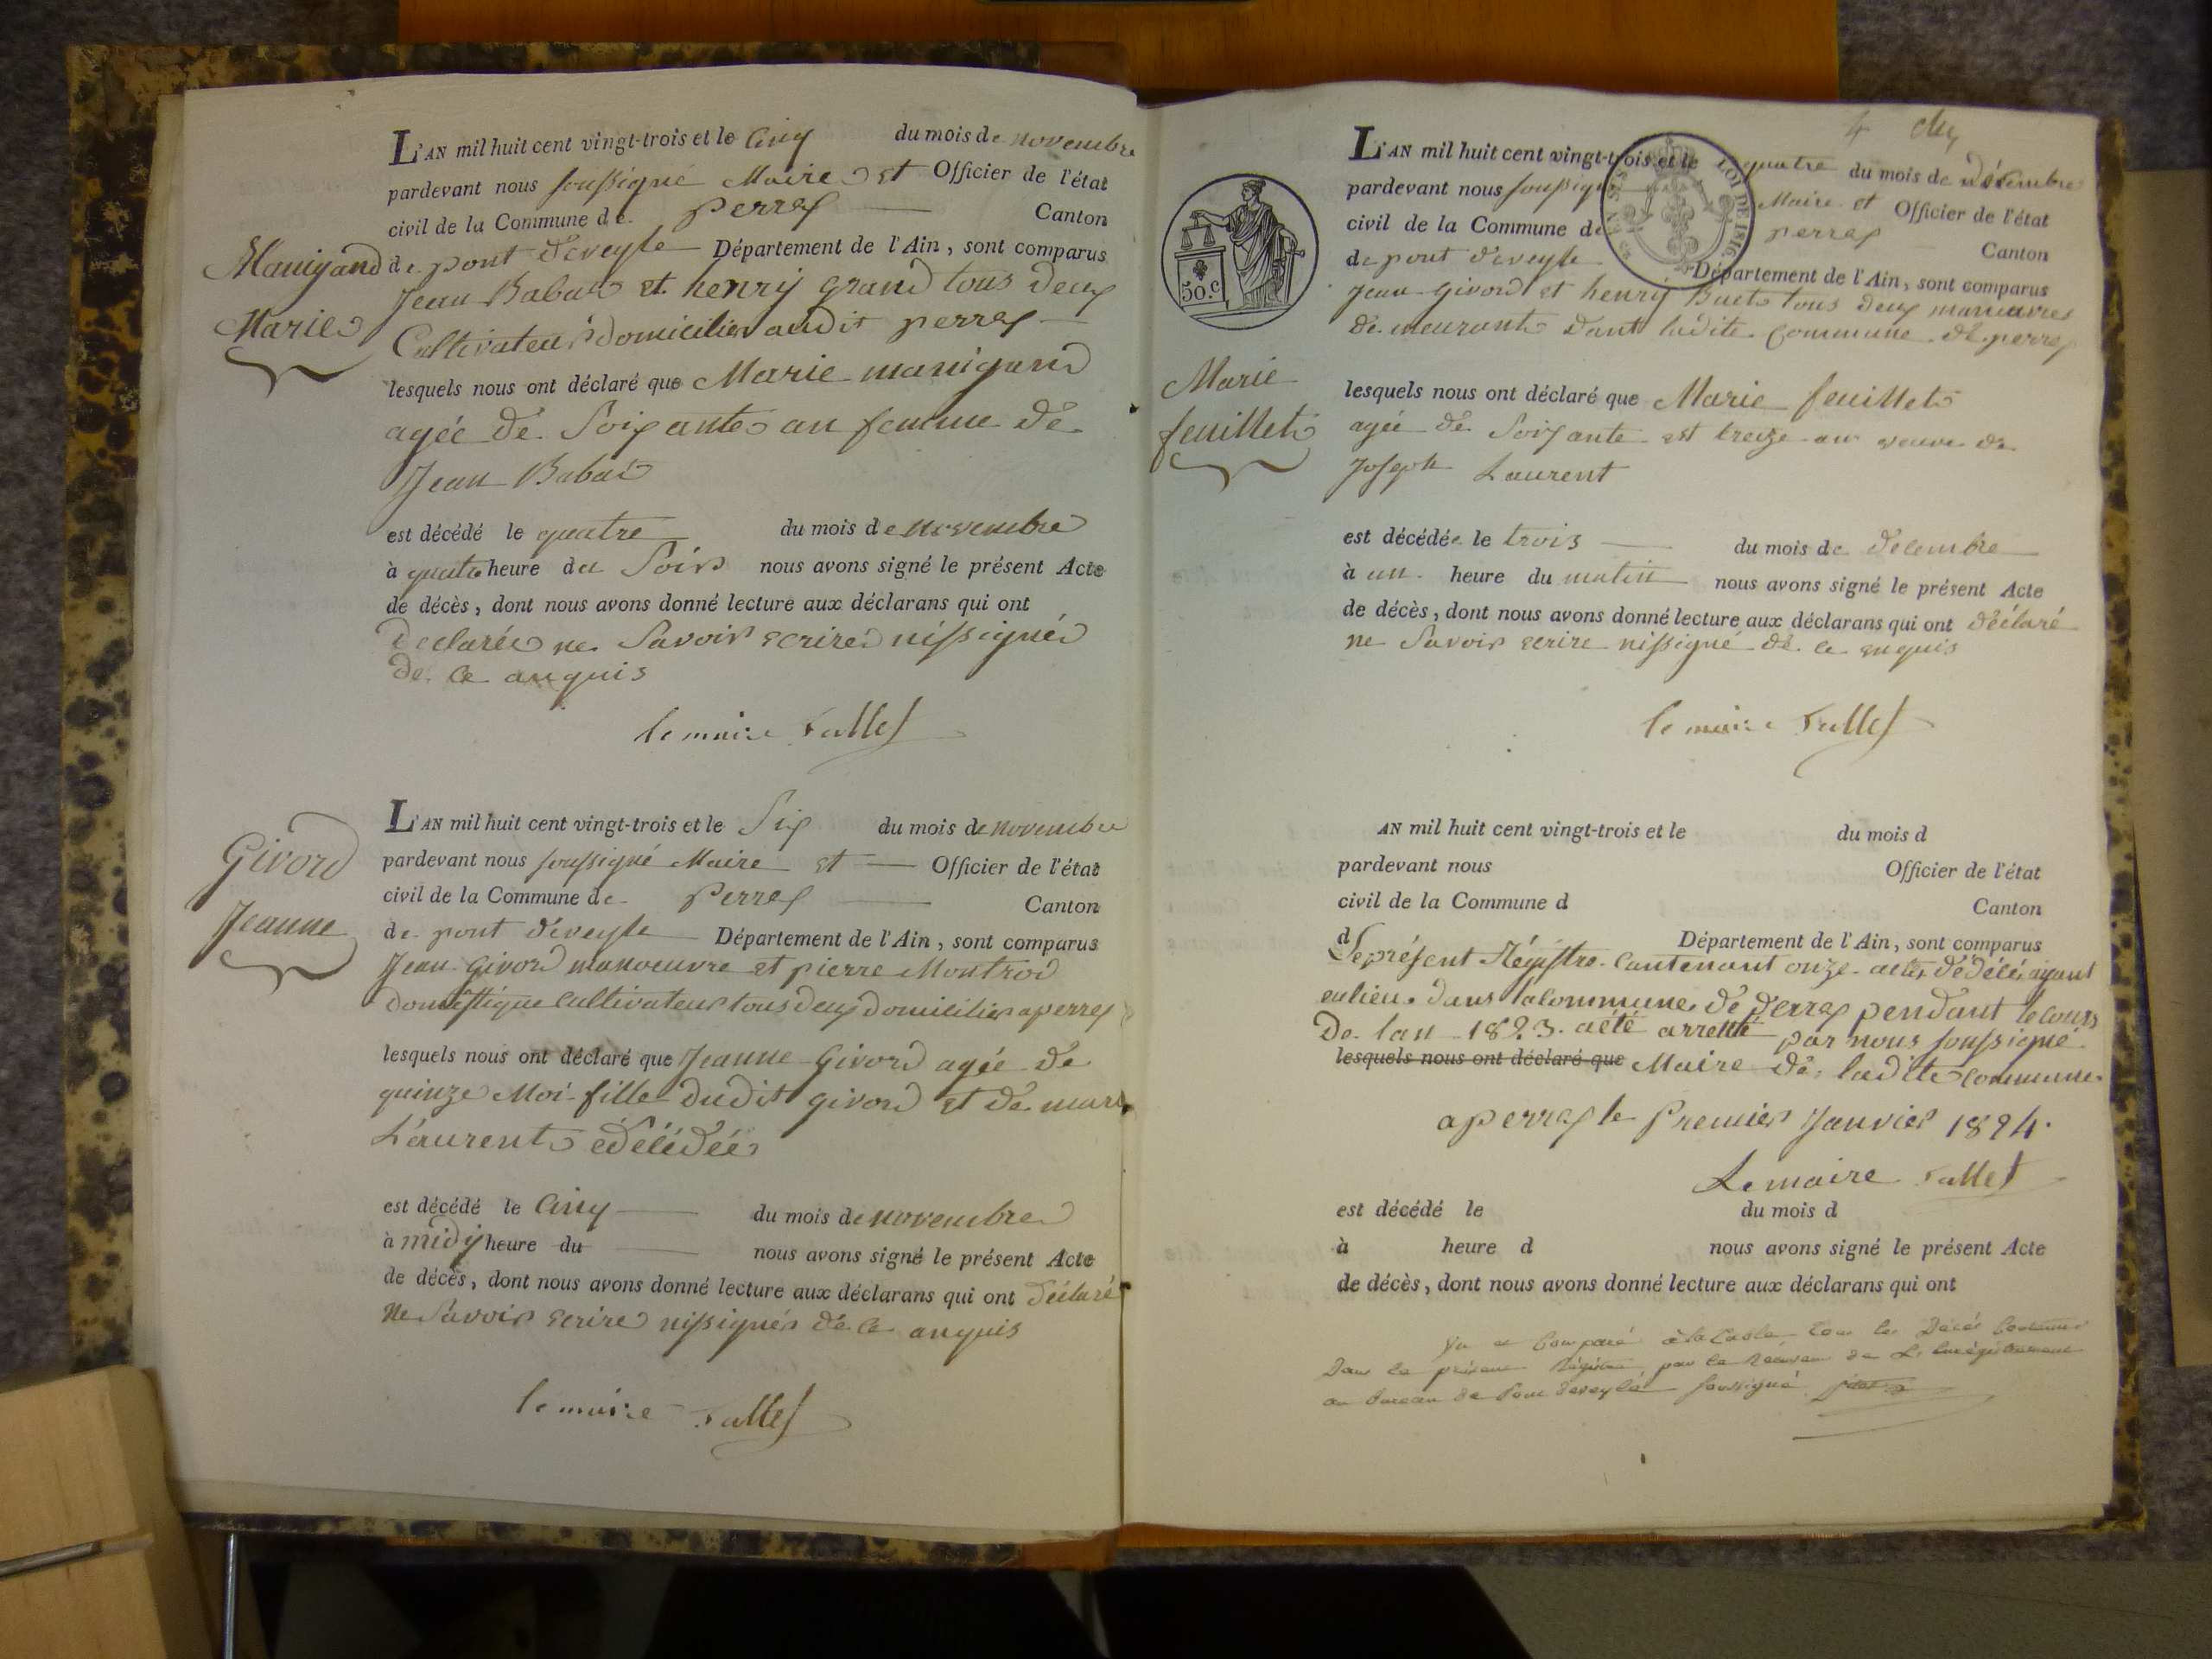 L'AN mil huit cent vingt-trois et le Cinq du mois de novembre
pardevant nous soussigné Maire et Officier de l'état
civil de la Commune de perrex Canton
de pont deveyle Département de l'Ain, sont comparus
Jean Babad et henry grand tous deux
Cultivateur domicilier audit perrex
Manigand
Marie
lesquels nous ont déclaré que Marie manigand
agée de Soixante an femme de
Jean Babad
est décédé le quatre du mois de novembre
à quatre heure du Soir nous avons signé le présent Acte
de décès, dont nous avons donné lecture aux déclarans qui ont
declarée ne Savoir ecrire nissigné
de ce anquis
le maire
L'AN mil huit cent vingt-trois et le Six du mois de novembre
pardevant nous soussigné Maire et Officier de l'état
civil de la Commune de Perrex Canton
de pont deveyle Département de l'Ain, sont comparus
Jean Givord manoeuvre et pierre Montrod
domestique cultivateur tous deux domicilier a perrex
Givord
Jeanne
lesquels nous ont déclaré que Jeanne Givord agée de
quinze Moi fille dudit givord et de
Laurent edécédée
est décédé le Cinq du mois de novembre
à midy heure du nous avons signé le présent Acte
de décès, dont nous avons donné lecture aux déclarans qui ont déclaré
ne Savoir ecrire nissignés de ce anquis
le maire
4
L'AN mil huit cent vingt-trois et le quatre du mois de décembre
pardevant nous Maire et Officier de l'état
civil de la Commune de perrex Canton
de pont deveyle Département de l'Ain, sont comparus
LOI DE 1816
50.c
Jean Givord et henry Buet tous deux manuvres
de meurant dant ladite Commune de perrex
Marie
feuillet
lesquels nous ont déclaré que Marie feuillet
agée de Soixante et treize an veuve de
Joseph Laurent
est décédée le trois du mois de decembre
à un heure du matin nous avons signé le présent Acte
de décès, dont nous avons donné lecture aux déclarans qui ont déclaré
ne Savoir ecrire nissigné de ce enquis
le maire
AN mil huit cent vingt-trois et le du mois d
pardevant nous Officier de l'état
civil de la Commune d Canton
d Département de l'Ain, sont comparus
Le présent Régistre Contenant onze actes de décés ayant
eu lieu dans la Commune de Perrex pendant le cours
De lan 1823. a été arretté par nous soussigné
lesquels nous ont déclaré que Maire de ladite commune
a perrex le Premier Janvier 1824.
Le maire
est décédé le du mois d
à heure d nous avons signé le présent Acte
de décès, dont nous avons donné lecture aux déclarans qui ont
Vu et Comparé à la table tous les Décés Contenus
Dans le présent Régistre par le Receveur de L'Enregistrement
au bureau de Pont deveyle soussigné